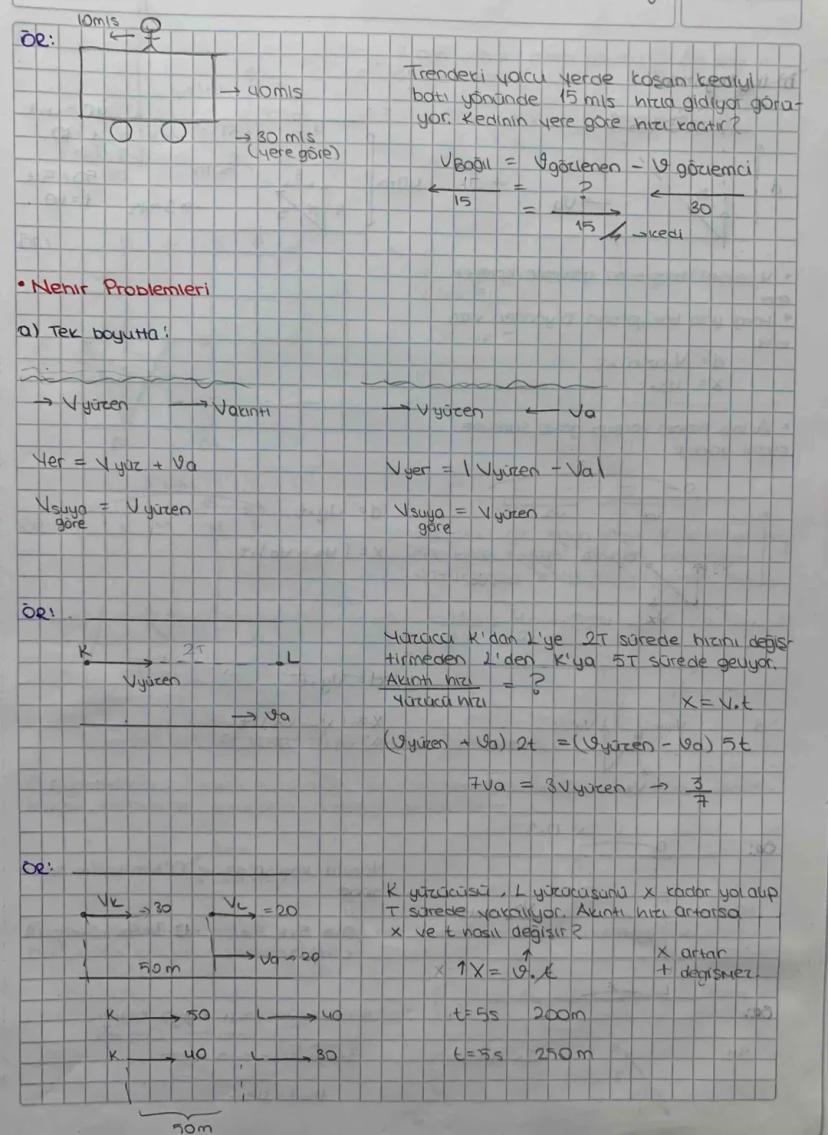 ÖR:
10m/s
→ 40m/s
→ 30 m/s
(yere göre)
Trendeki yolcu yerde koşan kediyi
batı yönünde 15 m/s hızla gidiyor görü-
yor. Kedinin yere göre hızı kaçtır?
VBağıl = ϑgözlenen - ϑ gözlemci
← 15 = ? ← 30
= → 15 → kedi
• Nehir Problemleri
a) Tek boyutta:
→ Vyüzen → Vakıntı
→ Vyüzen ← Va
Yer = Vyüz + ϑa
Vyer = |Vyüzen - Val
Vsuya göre = Vyüzen
Vsuya göre = Vyüzen
ÖR:
K 2T L
Vyüzen
→ ϑa
Yüzücü K'dan L'ye 2T sürede hızını değiş-
tirmeden L'den K'ya 5T sürede geliyor.
Akıntı hızı / Yüzücü hızı = ?
x = v.t
(ϑyüzen + ϑa) 2t = (ϑyüzen - ϑa) 5t
7Va = 3Vyüzen → 3/7
ÖR:
VK → 30 VL = 20
→ Va → 20
50m
K yüzücüsü, L yüzücüsünü x kadar yol alıp
T sürede yakalıyor. Akıntı hızı artarsa
x ve t nasıl değişir?
↑X = ϑ↑.t
x artar
t değişmez.
K → 50 L → 40 t=5s 200m
K → 40 L → 30 t=5s 250m
50m